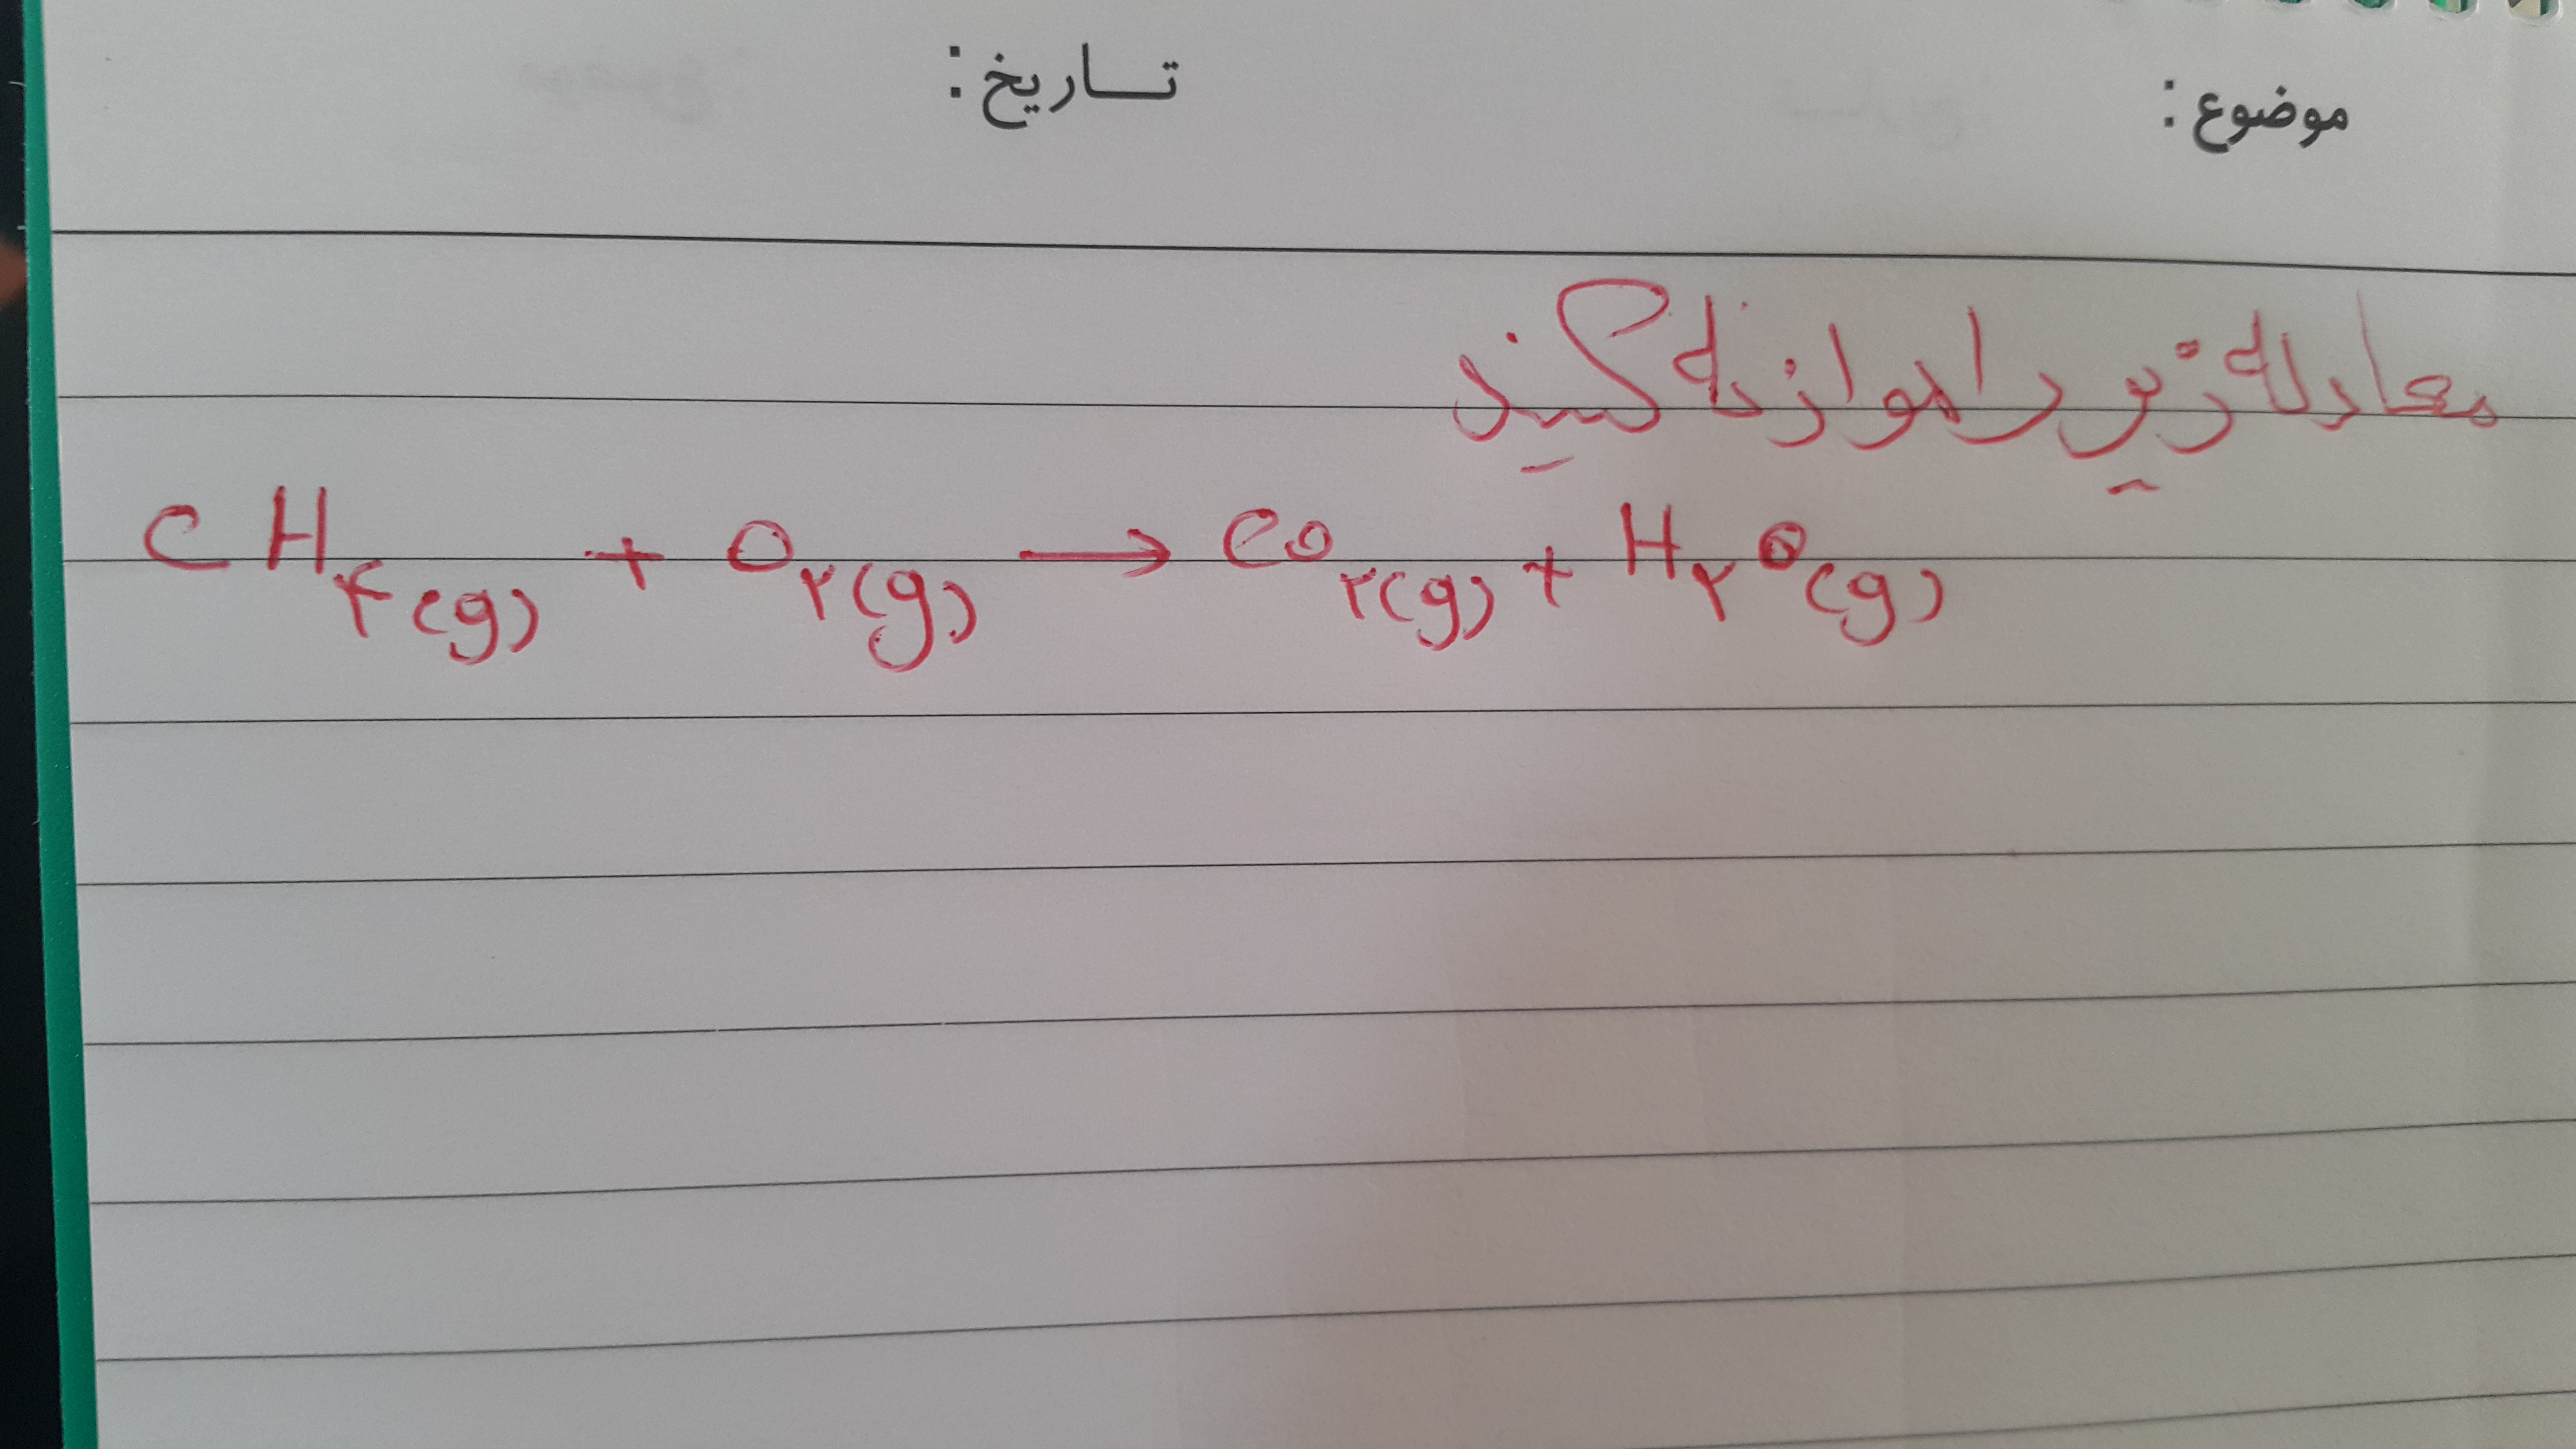 موضوع: تاریخ:
معادله زیر را موازنه کنید
CH۴(g) + O۲(g) → CO۲(g) + H۲O(g)